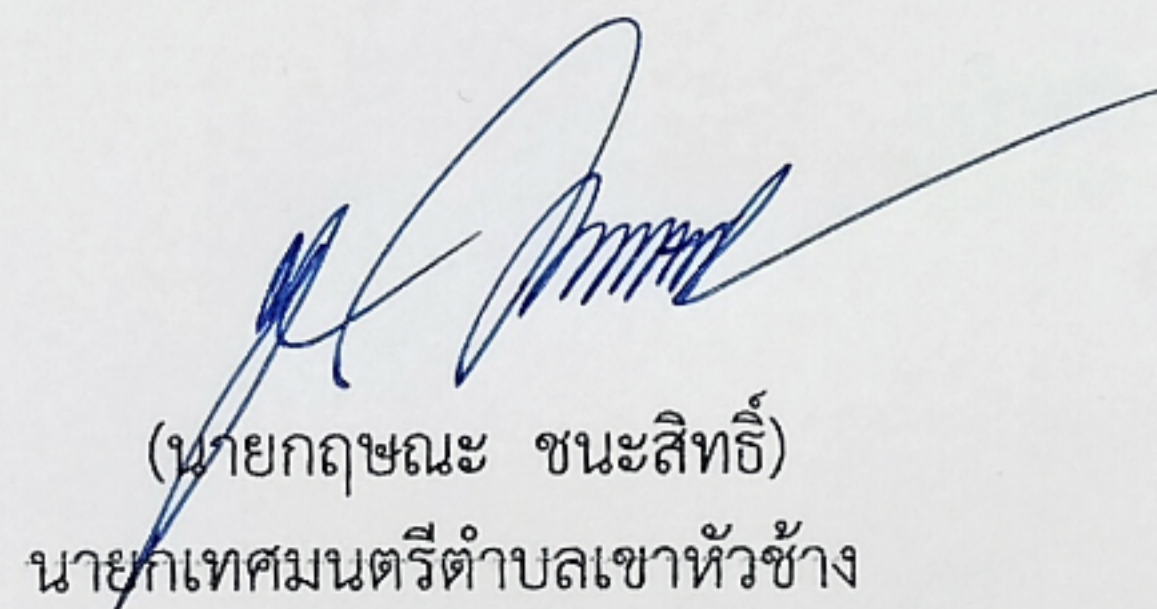 (นายกฤษณะ ชนะสิทธิ์)
นายกเทศมนตรีตำบลเขาหัวช้าง